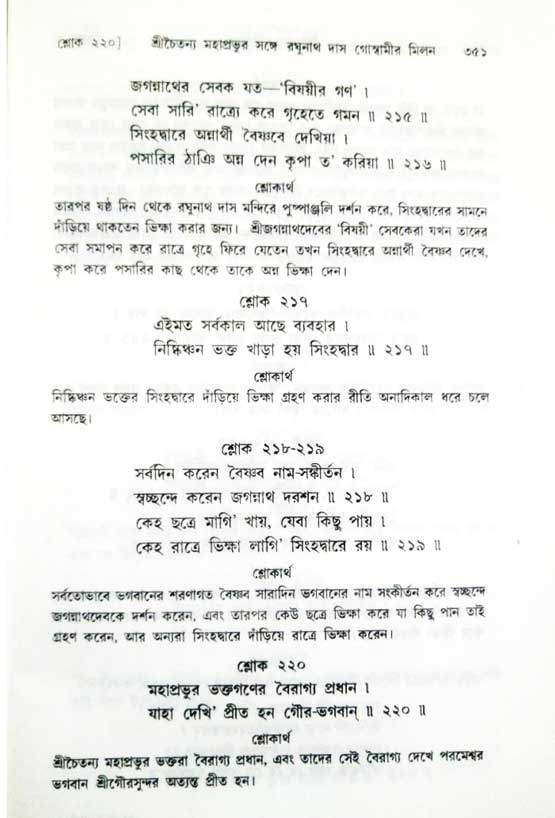 শ্লোক ২২০]    শ্রীচৈতন্য মহাপ্রভুর সঙ্গে রঘুনাথ দাস গোস্বামীর মিলন    ৩৫১
জগন্নাথের সেবক যত—‘বিষয়ীর গণ’ ।
সেবা সারি’ রাত্র্যে করে গৃহেতে গমন ॥ ২১৫ ॥
সিংহদ্বারে অন্নার্থী বৈষ্ণবে দেখিয়া ।
পসারির ঠাঞি অন্ন দেন কৃপা ত’ করিয়া ॥ ২১৬ ॥
শ্লোকার্থ
তারপর ষষ্ঠ দিন থেকে রঘুনাথ দাস মন্দিরে পুষ্পাঞ্জলি দর্শন করে, সিংহদ্বারের সামনে
দাঁড়িয়ে থাকতেন ভিক্ষা করার জন্য। শ্রীজগন্নাথদেবের ‘বিষয়ী’ সেবকেরা যখন তাদের
সেবা সমাপন করে রাত্রে গৃহে ফিরে যেতেন তখন সিংহদ্বারে অন্নার্থী বৈষ্ণব দেখে,
কৃপা করে পসারির কাছ থেকে তাকে অন্ন ভিক্ষা দেন।
শ্লোক ২১৭
এইমত সর্বকাল আছে ব্যবহার ।
নিষ্কিঞ্চন ভক্ত খাড়া হয় সিংহদ্বার ॥ ২১৭ ॥
শ্লোকার্থ
নিষ্কিঞ্চন ভক্তের সিংহদ্বারে দাঁড়িয়ে ভিক্ষা গ্রহণ করার রীতি অনাদিকাল ধরে চলে
আসছে।
শ্লোক ২১৮-২১৯
সর্বদিন করেন বৈষ্ণব নাম-সঙ্কীর্তন ।
স্বচ্ছন্দে করেন জগন্নাথ দরশন ॥ ২১৮ ॥
কেহ ছত্রে মাগি’ খায়, যেবা কিছু পায় ।
কেহ রাত্রে ভিক্ষা লাগি’ সিংহদ্বারে রয় ॥ ২১৯ ॥
শ্লোকার্থ
সর্বতোভাবে ভগবানের শরণাগত বৈষ্ণব সারাদিন ভগবানের নাম সংকীর্তন করে স্বচ্ছন্দে
জগন্নাথদেবকে দর্শন করেন, এবং তারপর কেউ ছত্রে ভিক্ষা করে যা কিছু পান তাই
গ্রহণ করেন, আর অন্যরা সিংহদ্বারে দাঁড়িয়ে রাত্রে ভিক্ষা করেন।
শ্লোক ২২০
মহাপ্রভুর ভক্তগণের বৈরাগ্য প্রধান ।
যাহা দেখি’ প্রীত হন গৌর-ভগবান্ ॥ ২২০ ॥
শ্লোকার্থ
শ্রীচৈতন্য মহাপ্রভুর ভক্তরা বৈরাগ্য প্রধান, এবং তাদের সেই বৈরাগ্য দেখে পরমেশ্বর
ভগবান শ্রীগৌরসুন্দর অত্যন্ত প্রীত হন।